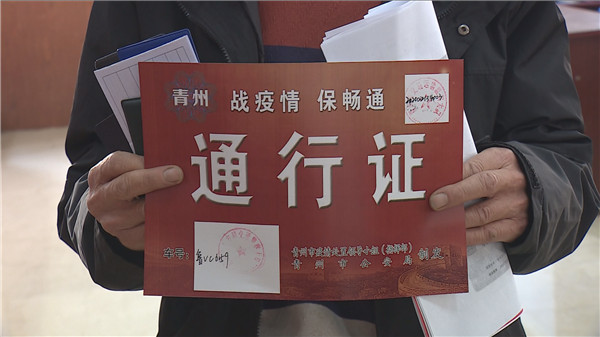 青州 战疫情 保畅通
通行证
车号:
青州市疫情处置领导小组(指挥部)
青州市公安局 制发